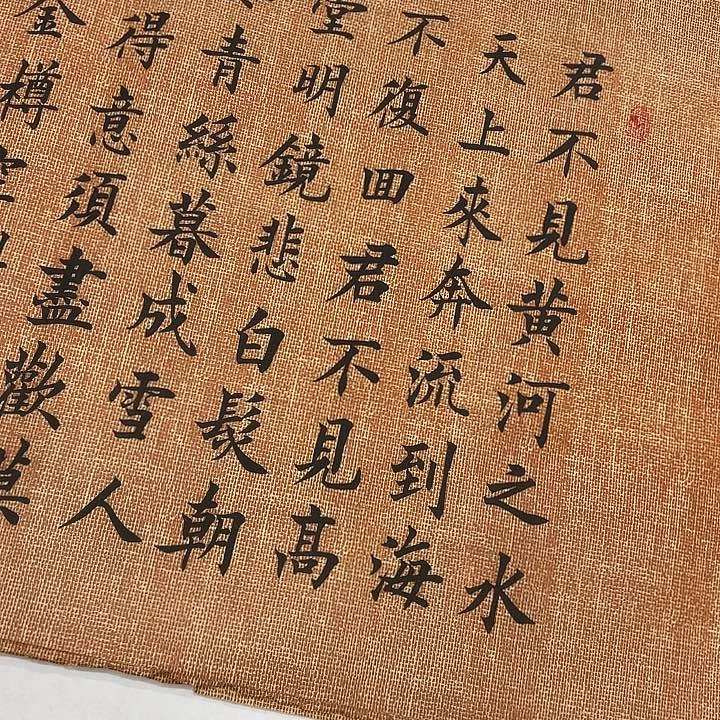 君不見黃河之水
天上來奔流到海
不復回君不見高
堂明鏡悲白髮朝
青絲暮成雪人
得意須盡歡莫
金樽空